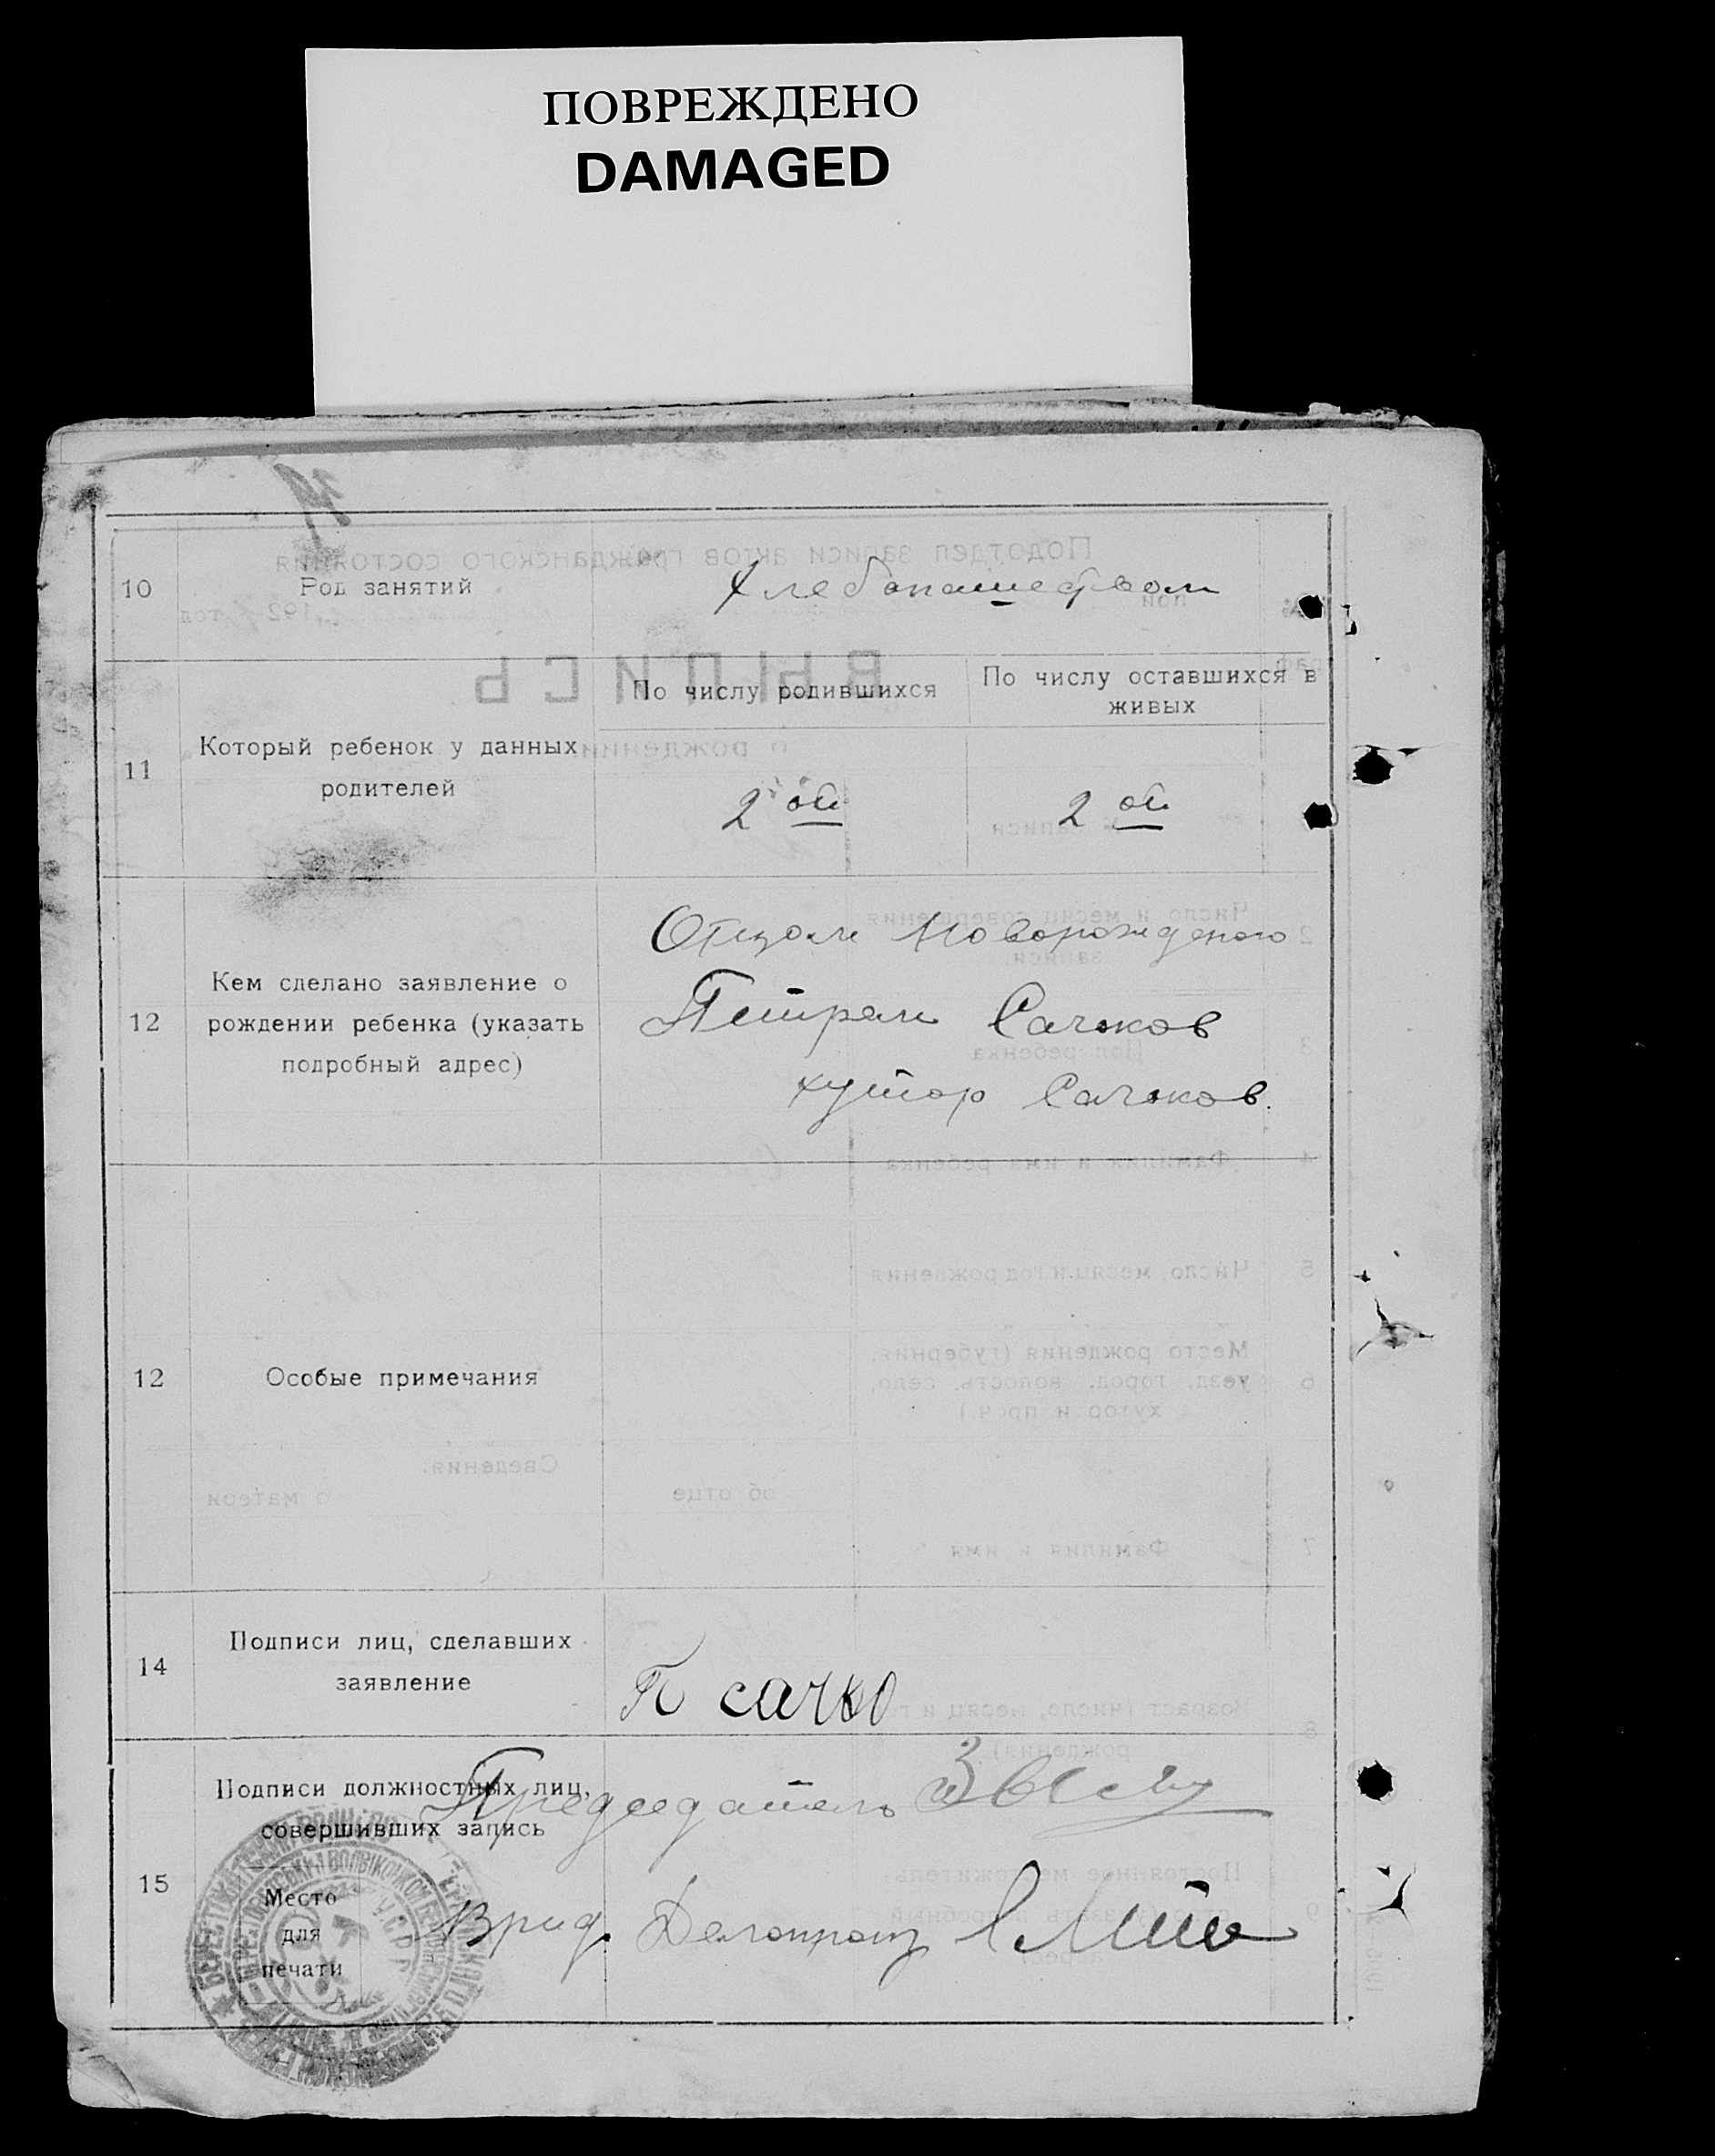 ПОВРЕЖДЕНО
DAMAGED
10 Род занятий Хлебопашеством
11 Который ребенок у данных родителей
По числу родившихся
По числу оставшихся в живых
2 ой 2 ой
12 Кем сделано заявление о
рождении ребенка (указать
подробный адрес)
Отцом новорожденого
Петром Сачков
хутор Сачков.
12 Особые примечания
14 Подписи лиц, сделавших
заявление
П сачко
15 Подписи должностных лиц,
совершивших запись
Председатель
Место
для
печати
Врид. Делопроиз
УСРР